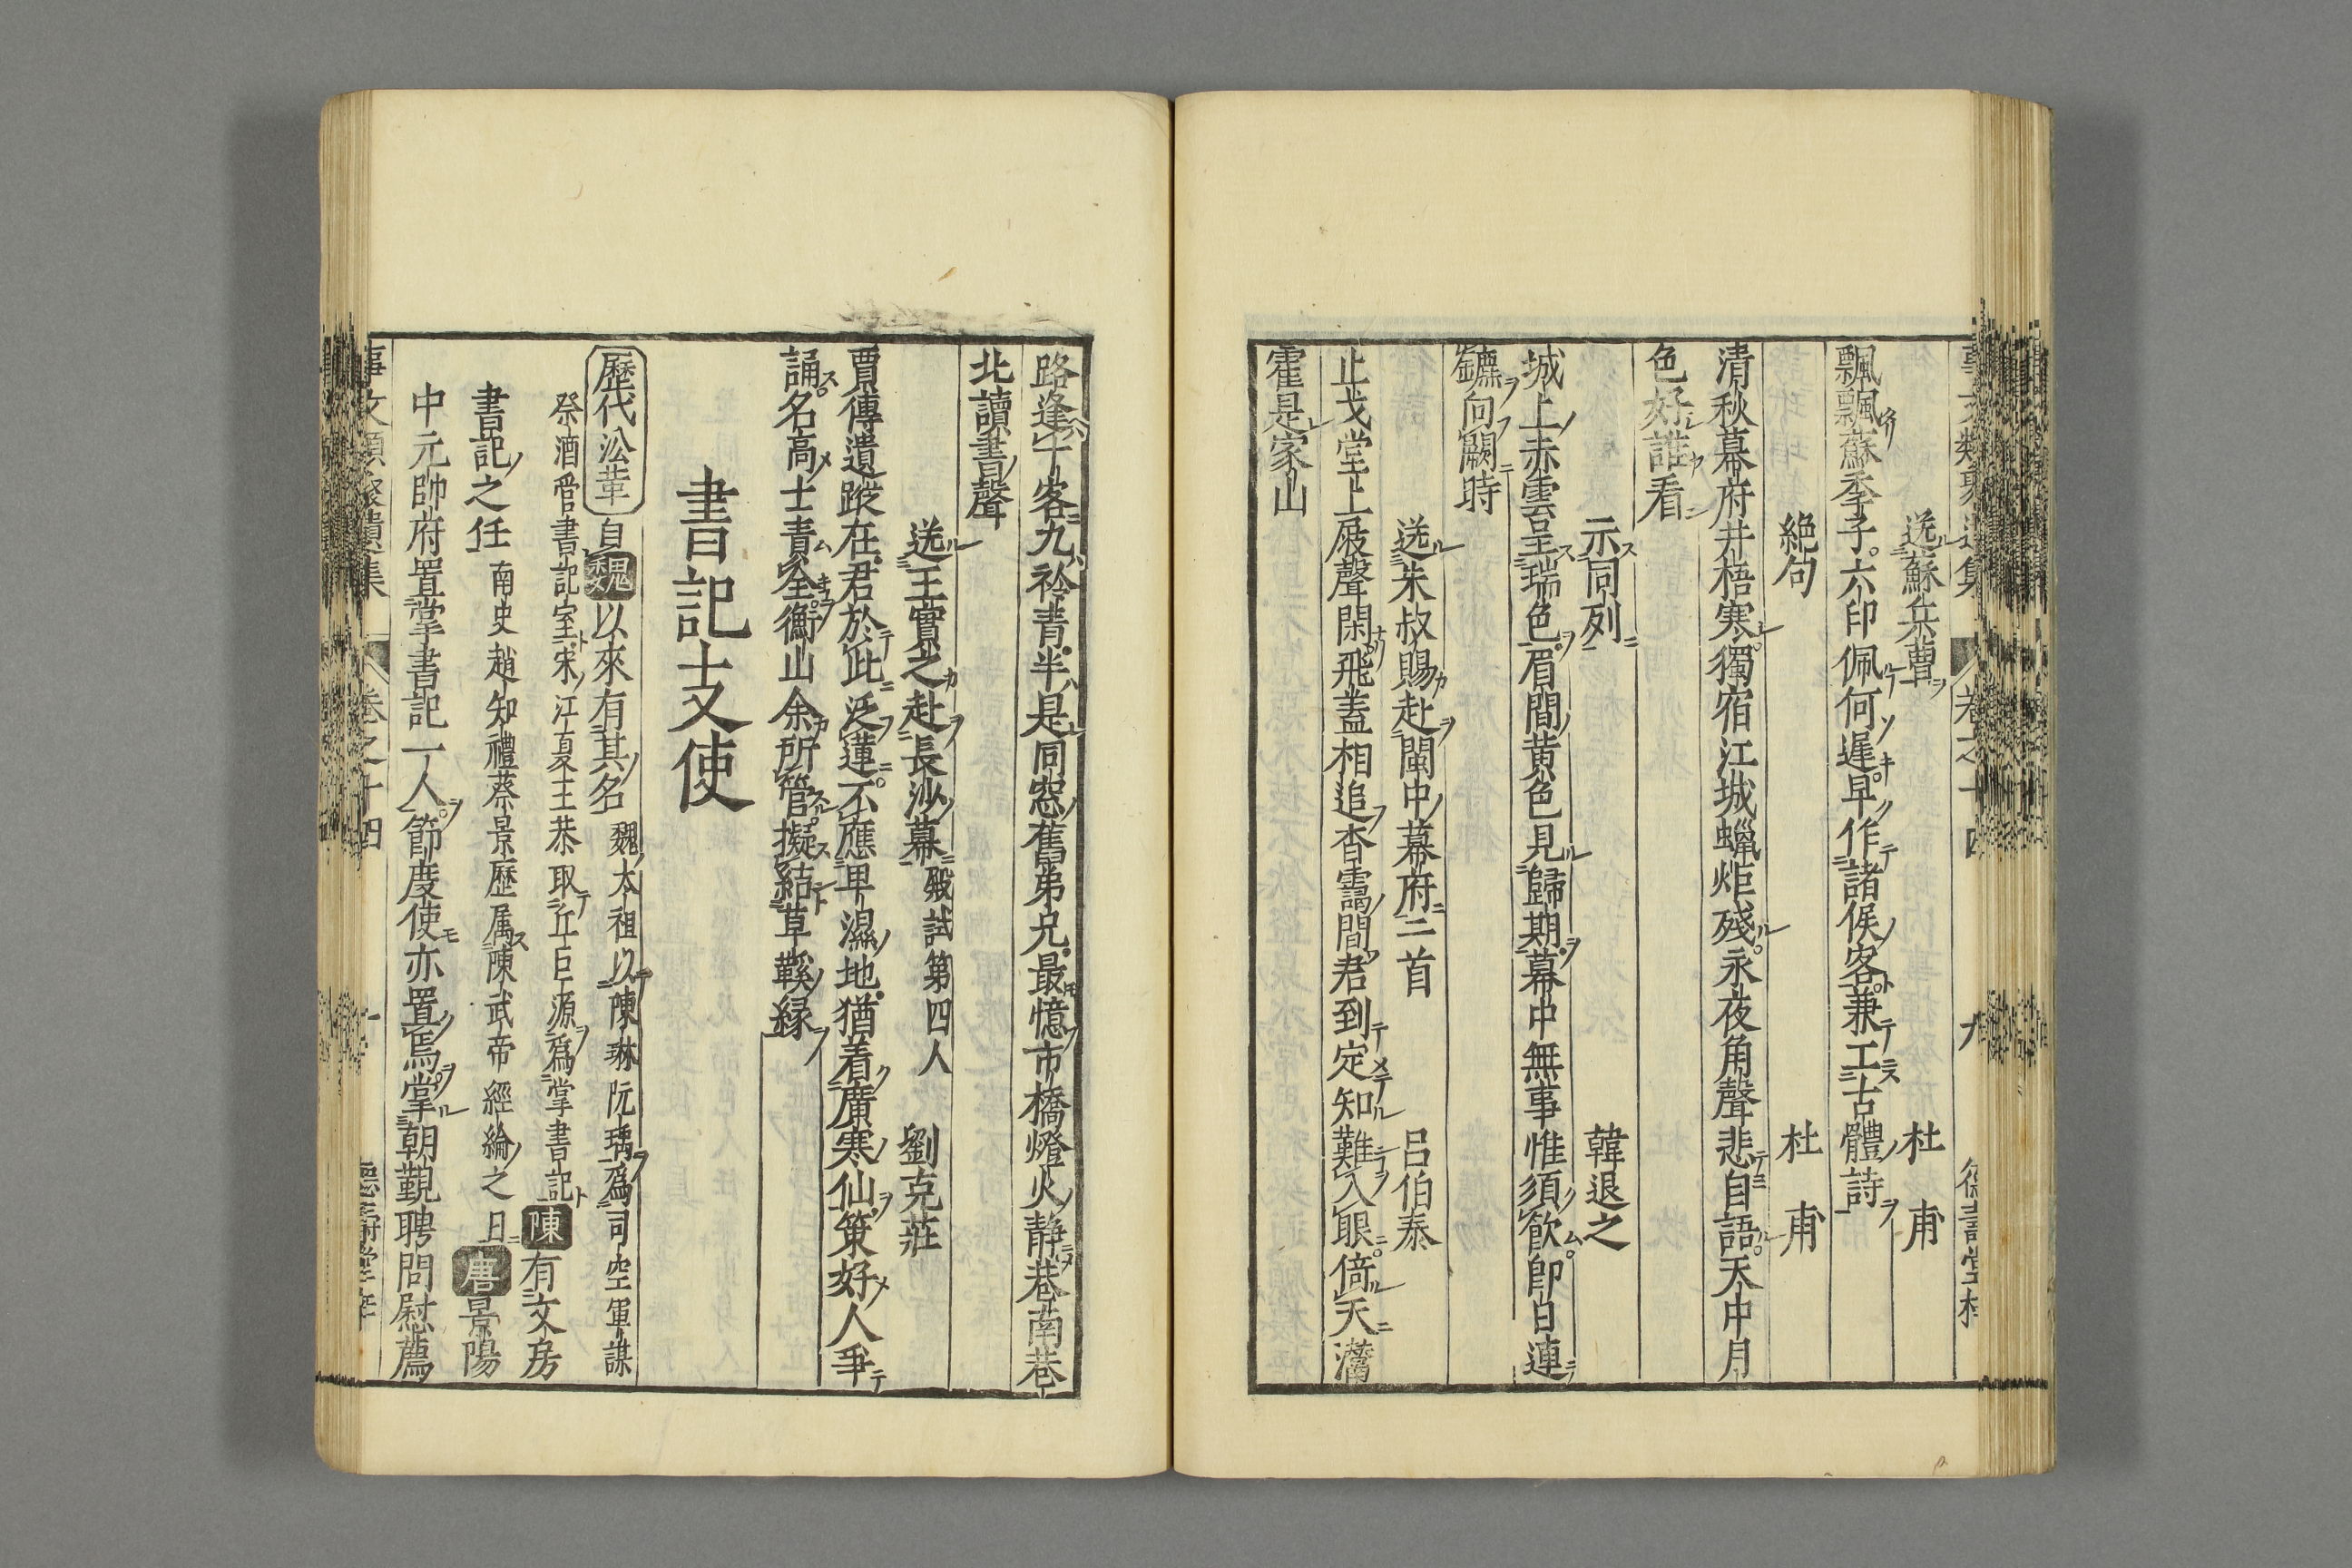 送蘇兵曹 杜甫
飄飄蘇季子六印佩何遲早作諸侯客兼工古體詩
絶句 杜甫
清秋幕府井梧寒獨宿江城蠟炬殘永夜角聲悲自語天中月
色好誰看
示同列 韓退之
城上赤雲呈瑞色眉間黄色見歸期幕中無事惟須飲即日連
鑣向闕時
送朱叔賜赴閩中幕府二首 呂伯泰
止戈堂上屐聲閑飛蓋相追杳靄間君到定知難入眼倚天灊
霍是家山
路逢午客九衿青半是同窓舊弟兄最憶市橋燈火静巷南巷
北讀書聲
送王實之赴長沙幕 殿試第四人 劉克莊
賈傳遺蹤在君於此泛蓮不應卑濕地猶着廣寒仙策好人爭
誦名高士責全衡山余所管擬結草鞵縁
書記支使
歴代㳂革 自魏以來有其名 魏太祖以陳琳阮瑀爲司空軍謀
祭酒管書記室宋江夏王恭取丘巨源爲掌書記 陳有文房
書記之任 南史趙知禮蔡景歴属陳武帝經綸之日 唐景陽
中元帥府置掌書記一人節度使亦置焉掌朝覲聘問慰薦
事文類聚遺集 卷之十四